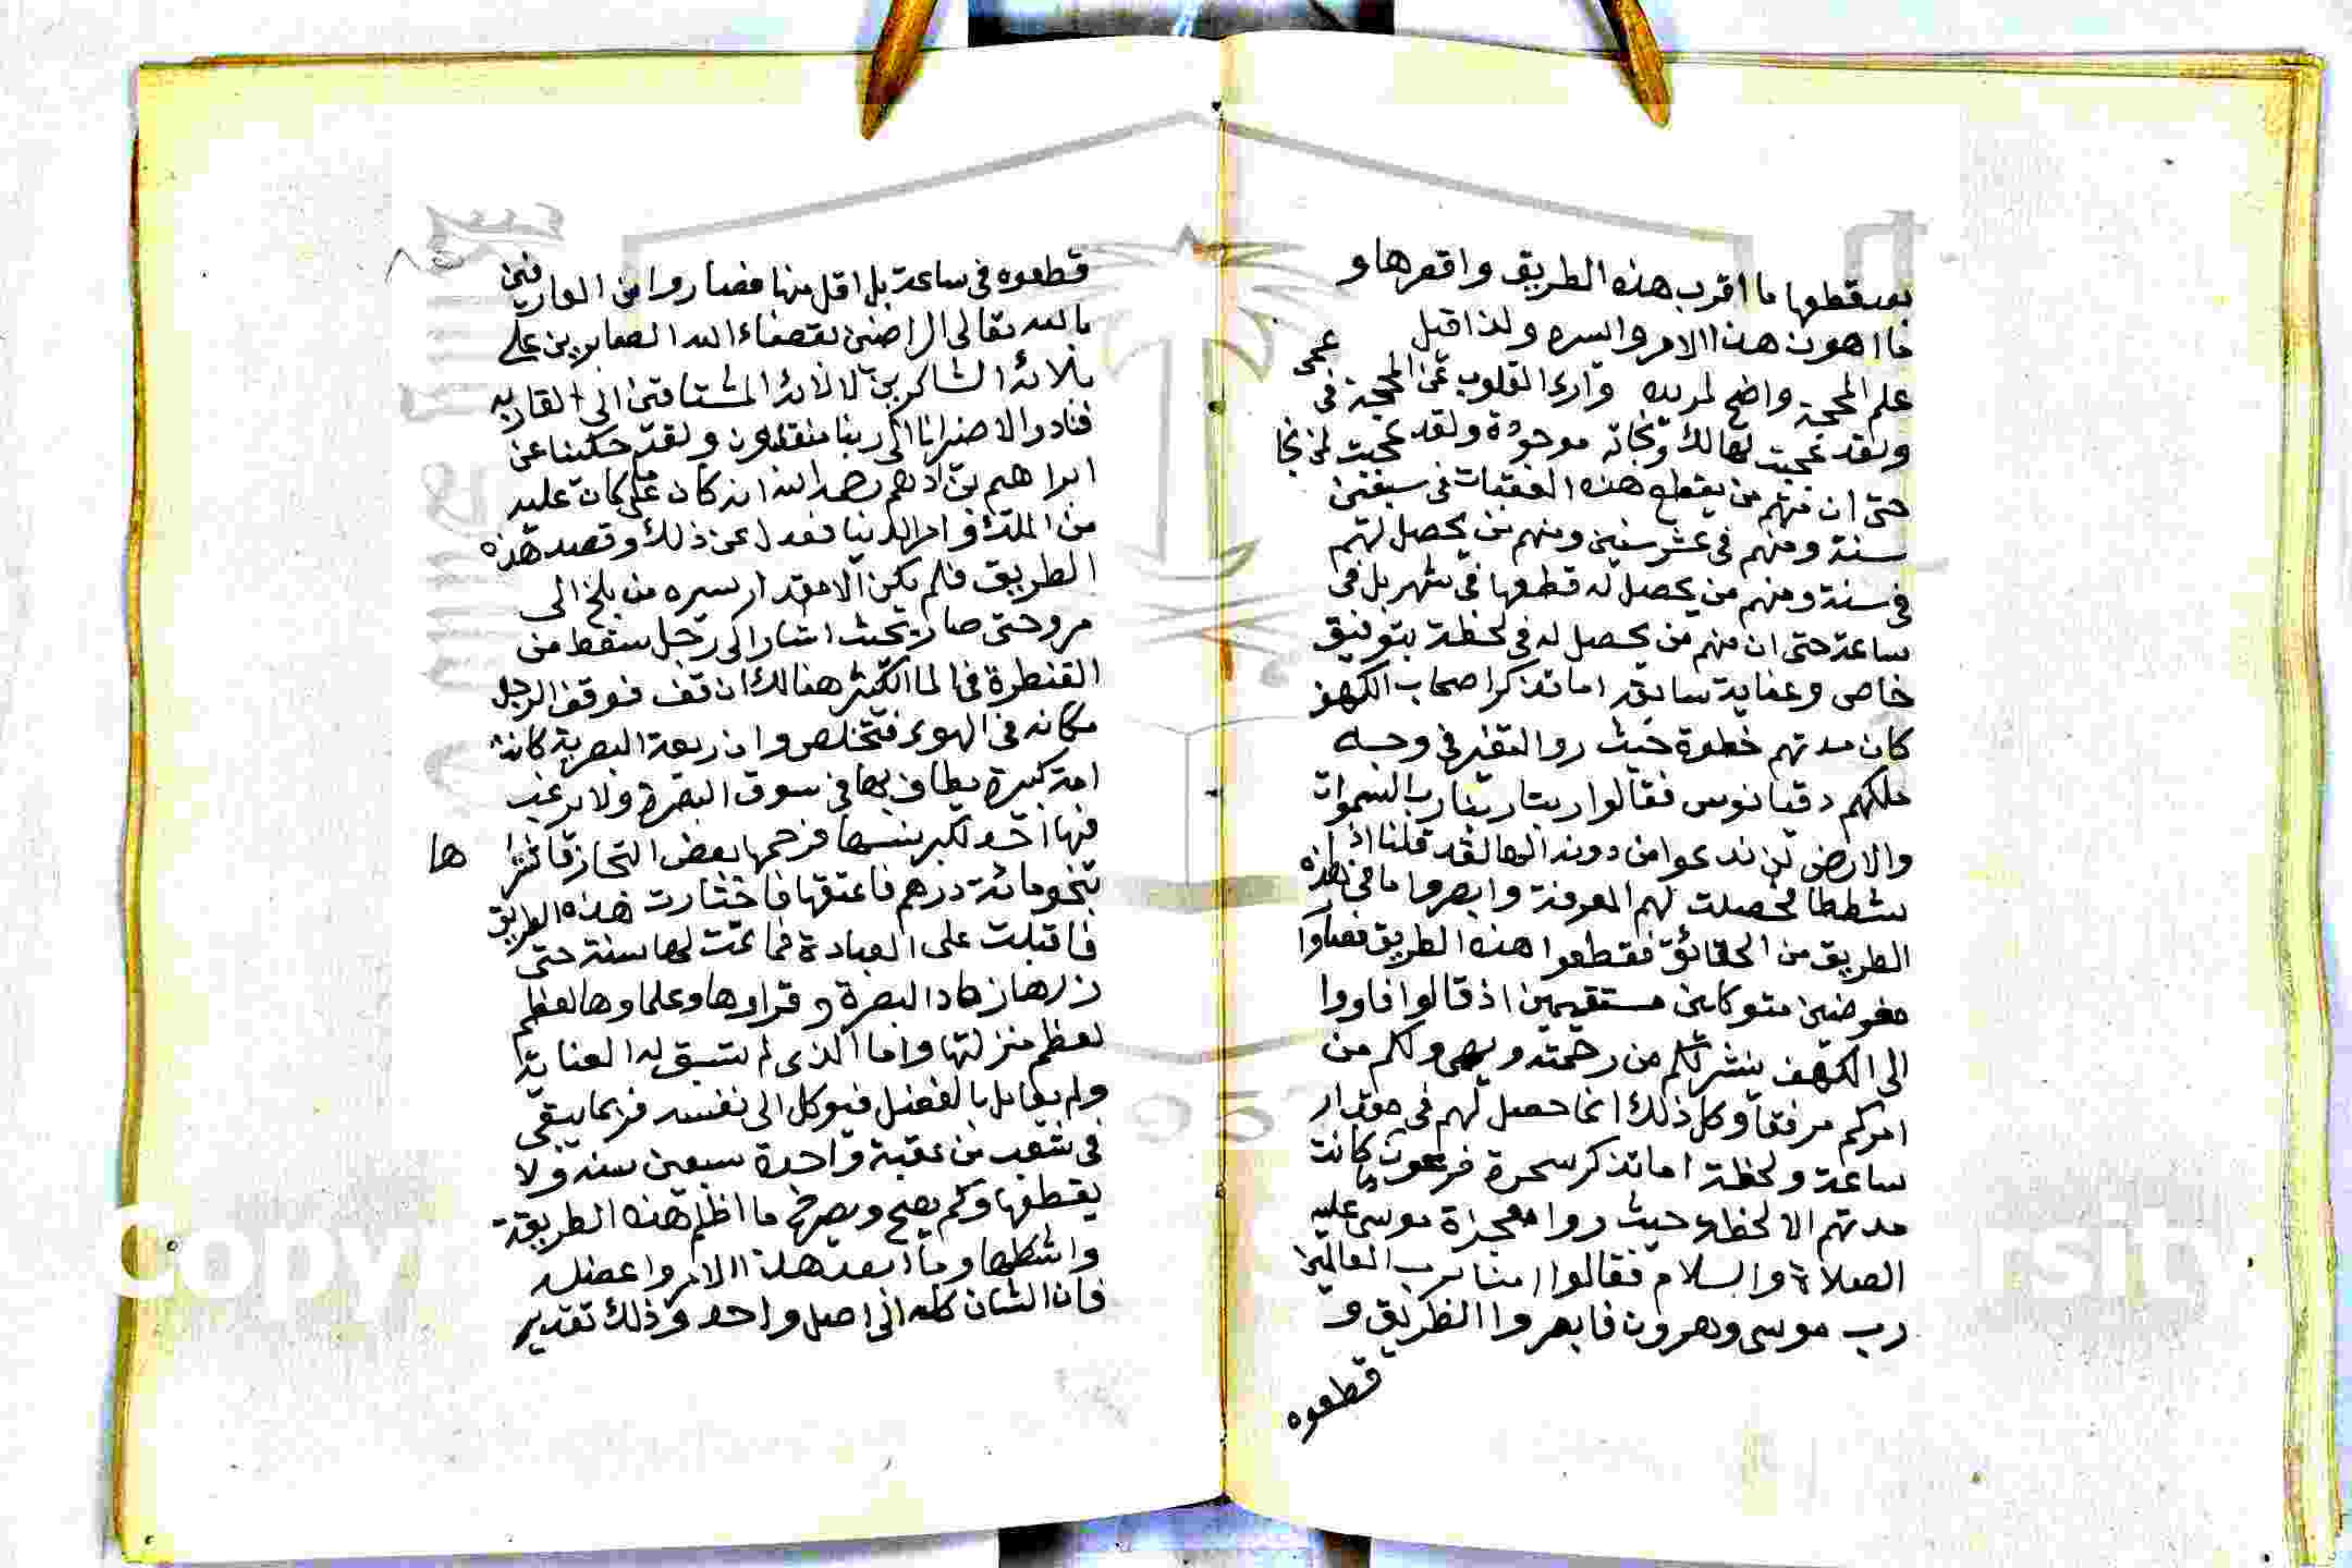 بعد قطعها ما اقرب هذه الطريق واقصرها و
ما اهون هذا الامر وايسره ولذا قيل
علم المحجة واضح لمريده وارى القلوب عن المحجة فى عمى
ولقد عجبت لهالك ونجاته موجودة ولقد عجبت لمن نجا
حتى ان منهم من يقطع هذه العقبات فى سبعين
سنة ومنهم فى عشر سنين ومنهم من يحصل لهم
فى سنة ومنهم من يحصل له قطعها فى شهر بل فى
ساعة حتى ان منهم من يحصل له فى لحظة بتوفيق
خاص وعناية سابقه اما تذكر اصحاب الكهف
كان مدتهم خطوة حيث روا التغير فى وجه
ملكهم دقيانوس فقالوا ربنا ربنا رب السموات
والارض لن ندعوا من دونه الها لقد قلنا اذا
شططا فحصلت لهم المعرفة وابصروا ما فى هذه
الطريق من الحقائق فقطعوا هذه الطريق فصاروا
مفوضين متوكلين مستقيمين اذ قالوا فاووا
الى الكهف ينشر لكم من رحمته ويهىء لكم من
امركم مرفقا وكل ذلك انما حصل لهم فى مقدار
ساعة ولحظة اما تذكر سحرة فرعون ما كانت
مدتهم الا لحظة حيث روا معجزة موسى عليه
الصلاة والسلام فقالوا امنا برب العالمين
رب موسى وهرون فابصروا الطريق و
قطعوه
قطعوه فى ساعة بل اقل منها فصاروا من العارفين
بالله تعالى الراضين بقضاء الله الصابرين على
بلائه الشاكرين لالائه المشتاقين الى لقاءه
فنادوا لا ضير انا الى ربنا منقلبون ولقد حكينا عن
ابراهيم بن ادهم رحمه الله انه كان على ما كان عليه
من الملك وامر الدنيا فعدل عن ذلك وقصد هذه
الطريق فلم يكن الا مقدار سيره من بلخ الى
مرو حتى صار بحيث اشار الى رجل سقط من
القنطرة فى الما الكثير هنالك ان قف فوقف الرجل
مكانه فى الهوى فتخلص وان ربعة البصرية كانت
امة كبيرة يطاف بها فى سوق البصرة ولا يرغب
فيها احد لكبر سنها فرحمها بعض التجار فاشترا ها
بنحو مائة درهم فاعتقها فاختارت هذه الطريق
فاقبلت على العبادة فما تمت لها سنة حتى
زارها زهاد البصرة وقراوها وعلماوها لعظم
لعظم منزلتها واما الذى لم تسبق له العناية
ولم يعامل بالفضل فيوكل الى نفسه فربما يبقى
فى شعب من عقبة واحدة سبعين سنة ولا
يقطعها وكم يصيح ويصرخ ما اظلم هذه الطريقة
واشكلها وما ابعد هذا الامر واعضله
فان الشان كله الى اصل واحد وذلك تقدير